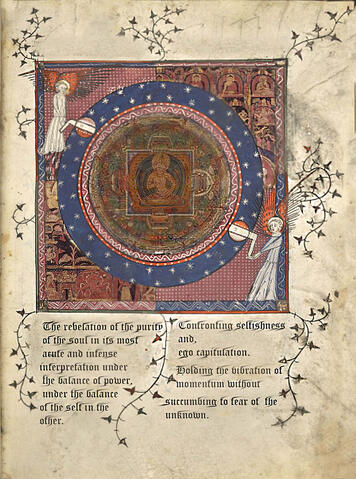 The rebelation of the purity
of the soul in its most
acute and intense
interpretation under
the balance of power,
under the balance
of the self in the
other.
Confronting selfishness
and,
ego capitulation.
Holding the vibration of
momentum without
succumbing to fear of the
unknown.